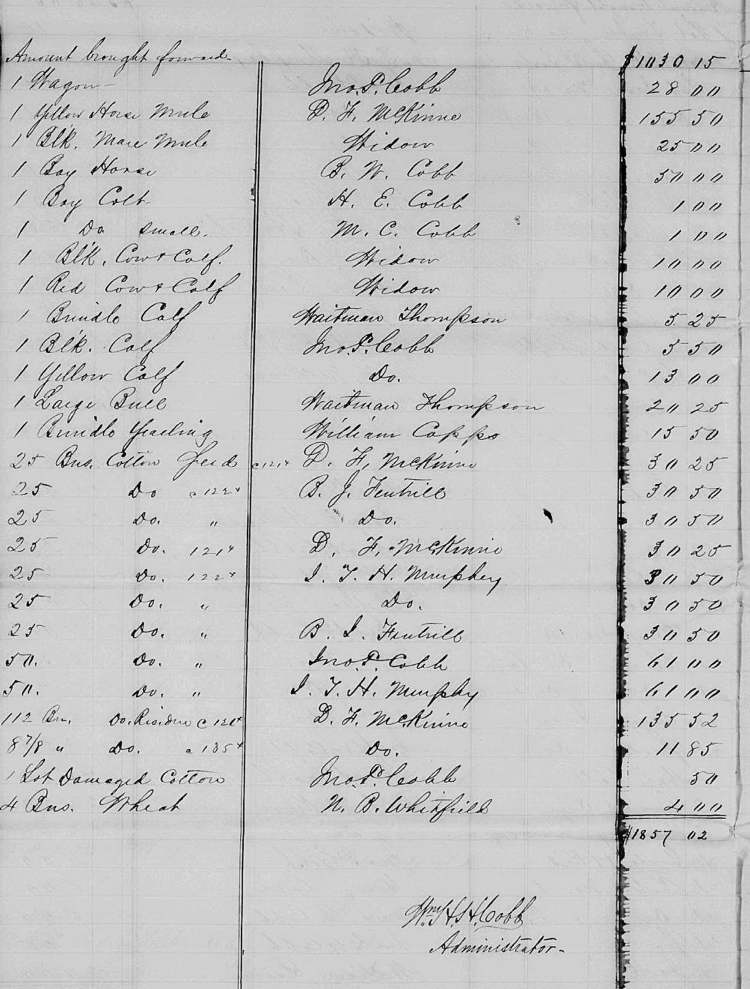 Amount brought forward $1030 15
1 Wagon Jno. P. Cobb 28 00
1 Yellow Horse Mule D. F. McKinne 155 50
1 Blk. Mare Mule Widow 25 00
1 Bay Horse B. W. Cobb 50 00
1 Bay Colt H. E. Cobb 1 00
1 Do small. M. C. Cobb 1 00
1 Blk. Cow & Calf. Widow 10 00
1 Red Cow & Calf Widow 10 00
1 Brindle Calf Waitman Thompson 5 25
1 Blk. Calf Jno. P. Cobb 5 50
1 Yellow Calf Do. 13 00
1 Large Bull Waitman Thompson 20 25
1 Brindle Yearling William Capps 15 50
25 Bus. Cotton Seed @ 121¢ D. F. McKinne 30 25
25 Do @ 122¢ B. J. Fentrill 30 50
25 Do. " Do. 30 50
25 Do. 121¢ D. F. McKinne 30 25
25 Do. 122¢ I. T. H. Murphey 30 50
25 Do. " Do. 30 50
25 Do. " B. I. Fentrill 30 50
50. Do. " Jno. P. Cobb 61 00
50. Do. " I. T. H. Murphy 61 00
112 Bu. Do. Residue @ 121¢ D. F. McKinne 135 52
8 7/8 " Do. @ 135¢ Do. 11 85
1 Lot Damaged Cotton Jno. P. Cobb 50
4 Bus. Wheat N. B. Whitfield 4 00
$1857 02
Wm. H. H. Cobb
Administrator-